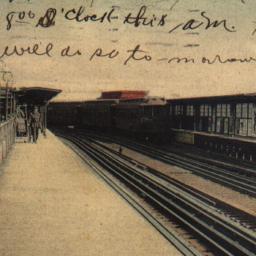 8 o'clock this a.m.
will do so to-morrow